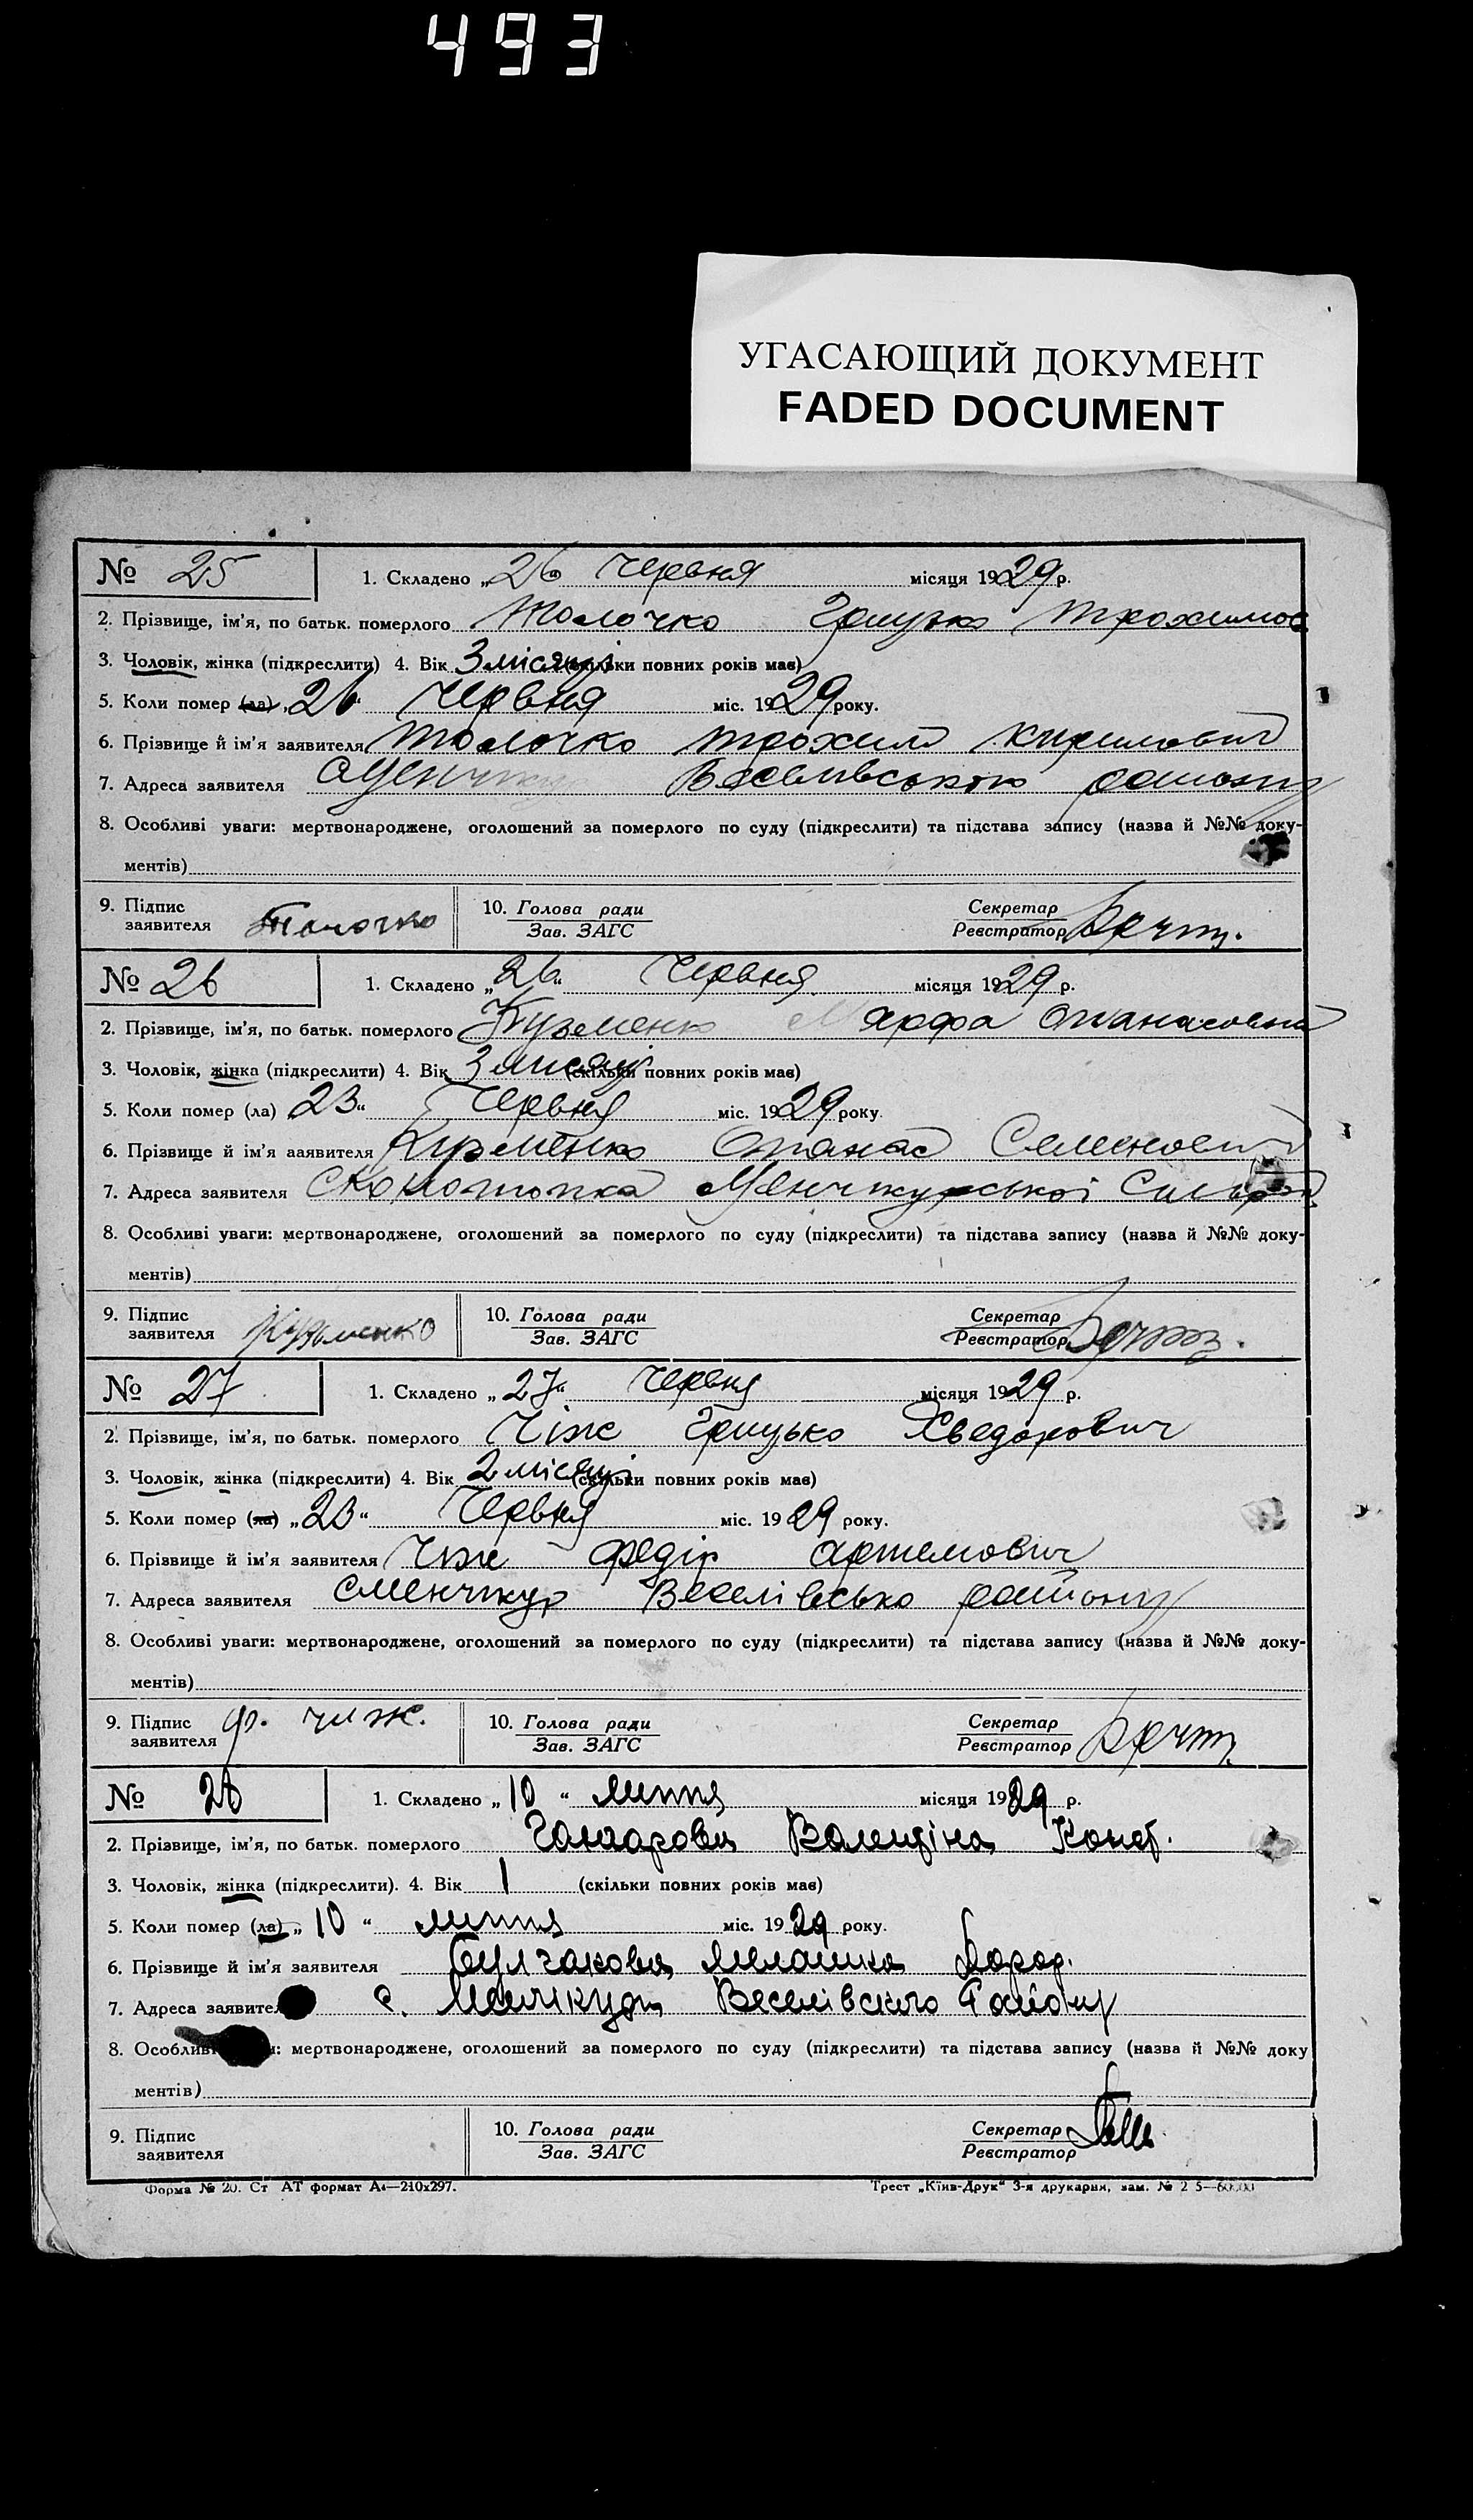 493
УГАСАЮЩИЙ ДОКУМЕНТ
FADED DOCUMENT
№ 25 1. Складено „26“ Червня місяця 1929 р.
2. Прізвище, ім'я, по батьк. померлого Толочко Грицько Трохимов
3. Чоловік, жінка (підкреслити) 4. Вік 3 місяці (скільки повних років має)
5. Коли помер (ла) „26“ Червня міс. 1929 року.
6. Прізвище й ім'я заявителя Толочко Трохим Кирилович
7. Адреса заявителя Веселівського району
8. Особливі уваги: мертвонароджене, оголошений за померлого по суду (підкреслити) та підстава запису (назва й №№ доку-
ментів)
9. Підпис заявителя Толочко 10. Голова ради Зав. ЗАГС Секретар Реєстратор
№ 26 1. Складено „26“ Червня місяця 1929 р.
2. Прізвище, ім'я, по батьк. померлого Кузьменко Марфа Опанасовна
3. Чоловік, жінка (підкреслити) 4. Вік 3 місяці (скільки повних років має)
5. Коли помер (ла) 23“ Червня міс. 1929 року.
6. Прізвище й ім'я заявителя Кузьменко Опанас Семенович
7. Адреса заявителя Менчикурської
8. Особливі уваги: мертвонароджене, оголошений за померлого по суду (підкреслити) та підстава запису (назва й №№ доку-
ментів)
9. Підпис заявителя Кузьменко 10. Голова ради Зав. ЗАГС Секретар Реєстратор
№ 27 1. Складено „27“ Червня місяця 1929 р.
2. Прізвище, ім'я, по батьк. померлого Чіж Грицько Хведорович
3. Чоловік, жінка (підкреслити) 4. Вік 2 місяці (скільки повних років має)
5. Коли помер (ла) „23“ Червня міс. 1929 року.
6. Прізвище й ім'я заявителя Чіж Федір Артемович
7. Адреса заявителя с Менчикур Веселівсько району
8. Особливі уваги: мертвонароджене, оголошений за померлого по суду (підкреслити) та підстава запису (назва й №№ доку-
ментів)
9. Підпис заявителя Ф. Чиж. 10. Голова ради Зав. ЗАГС Секретар Реєстратор
№ 28 1. Складено „10“ липня місяця 1929 р.
2. Прізвище, ім'я, по батьк. померлого Гончарова Валентіна Конст.
3. Чоловік, жінка (підкреслити). 4. Вік 1 (скільки повних років має)
5. Коли помер (ла) „10“ липня міс. 1929 року.
6. Прізвище й ім'я заявителя Булгакова Мелашка
7. Адреса заявител с. Менчикури Веселівского Району
8. Особливі мертвонароджене, оголошений за померлого по суду (підкреслити) та підстава запису (назва й №№ доку
ментів)
9. Підпис заявителя 10. Голова ради Зав. ЗАГС Секретар Реєстратор
Форма № 20. Ст АТ формат А4—210х297. Трест „Київ-Друк“ 3-я друкарня, зам. №